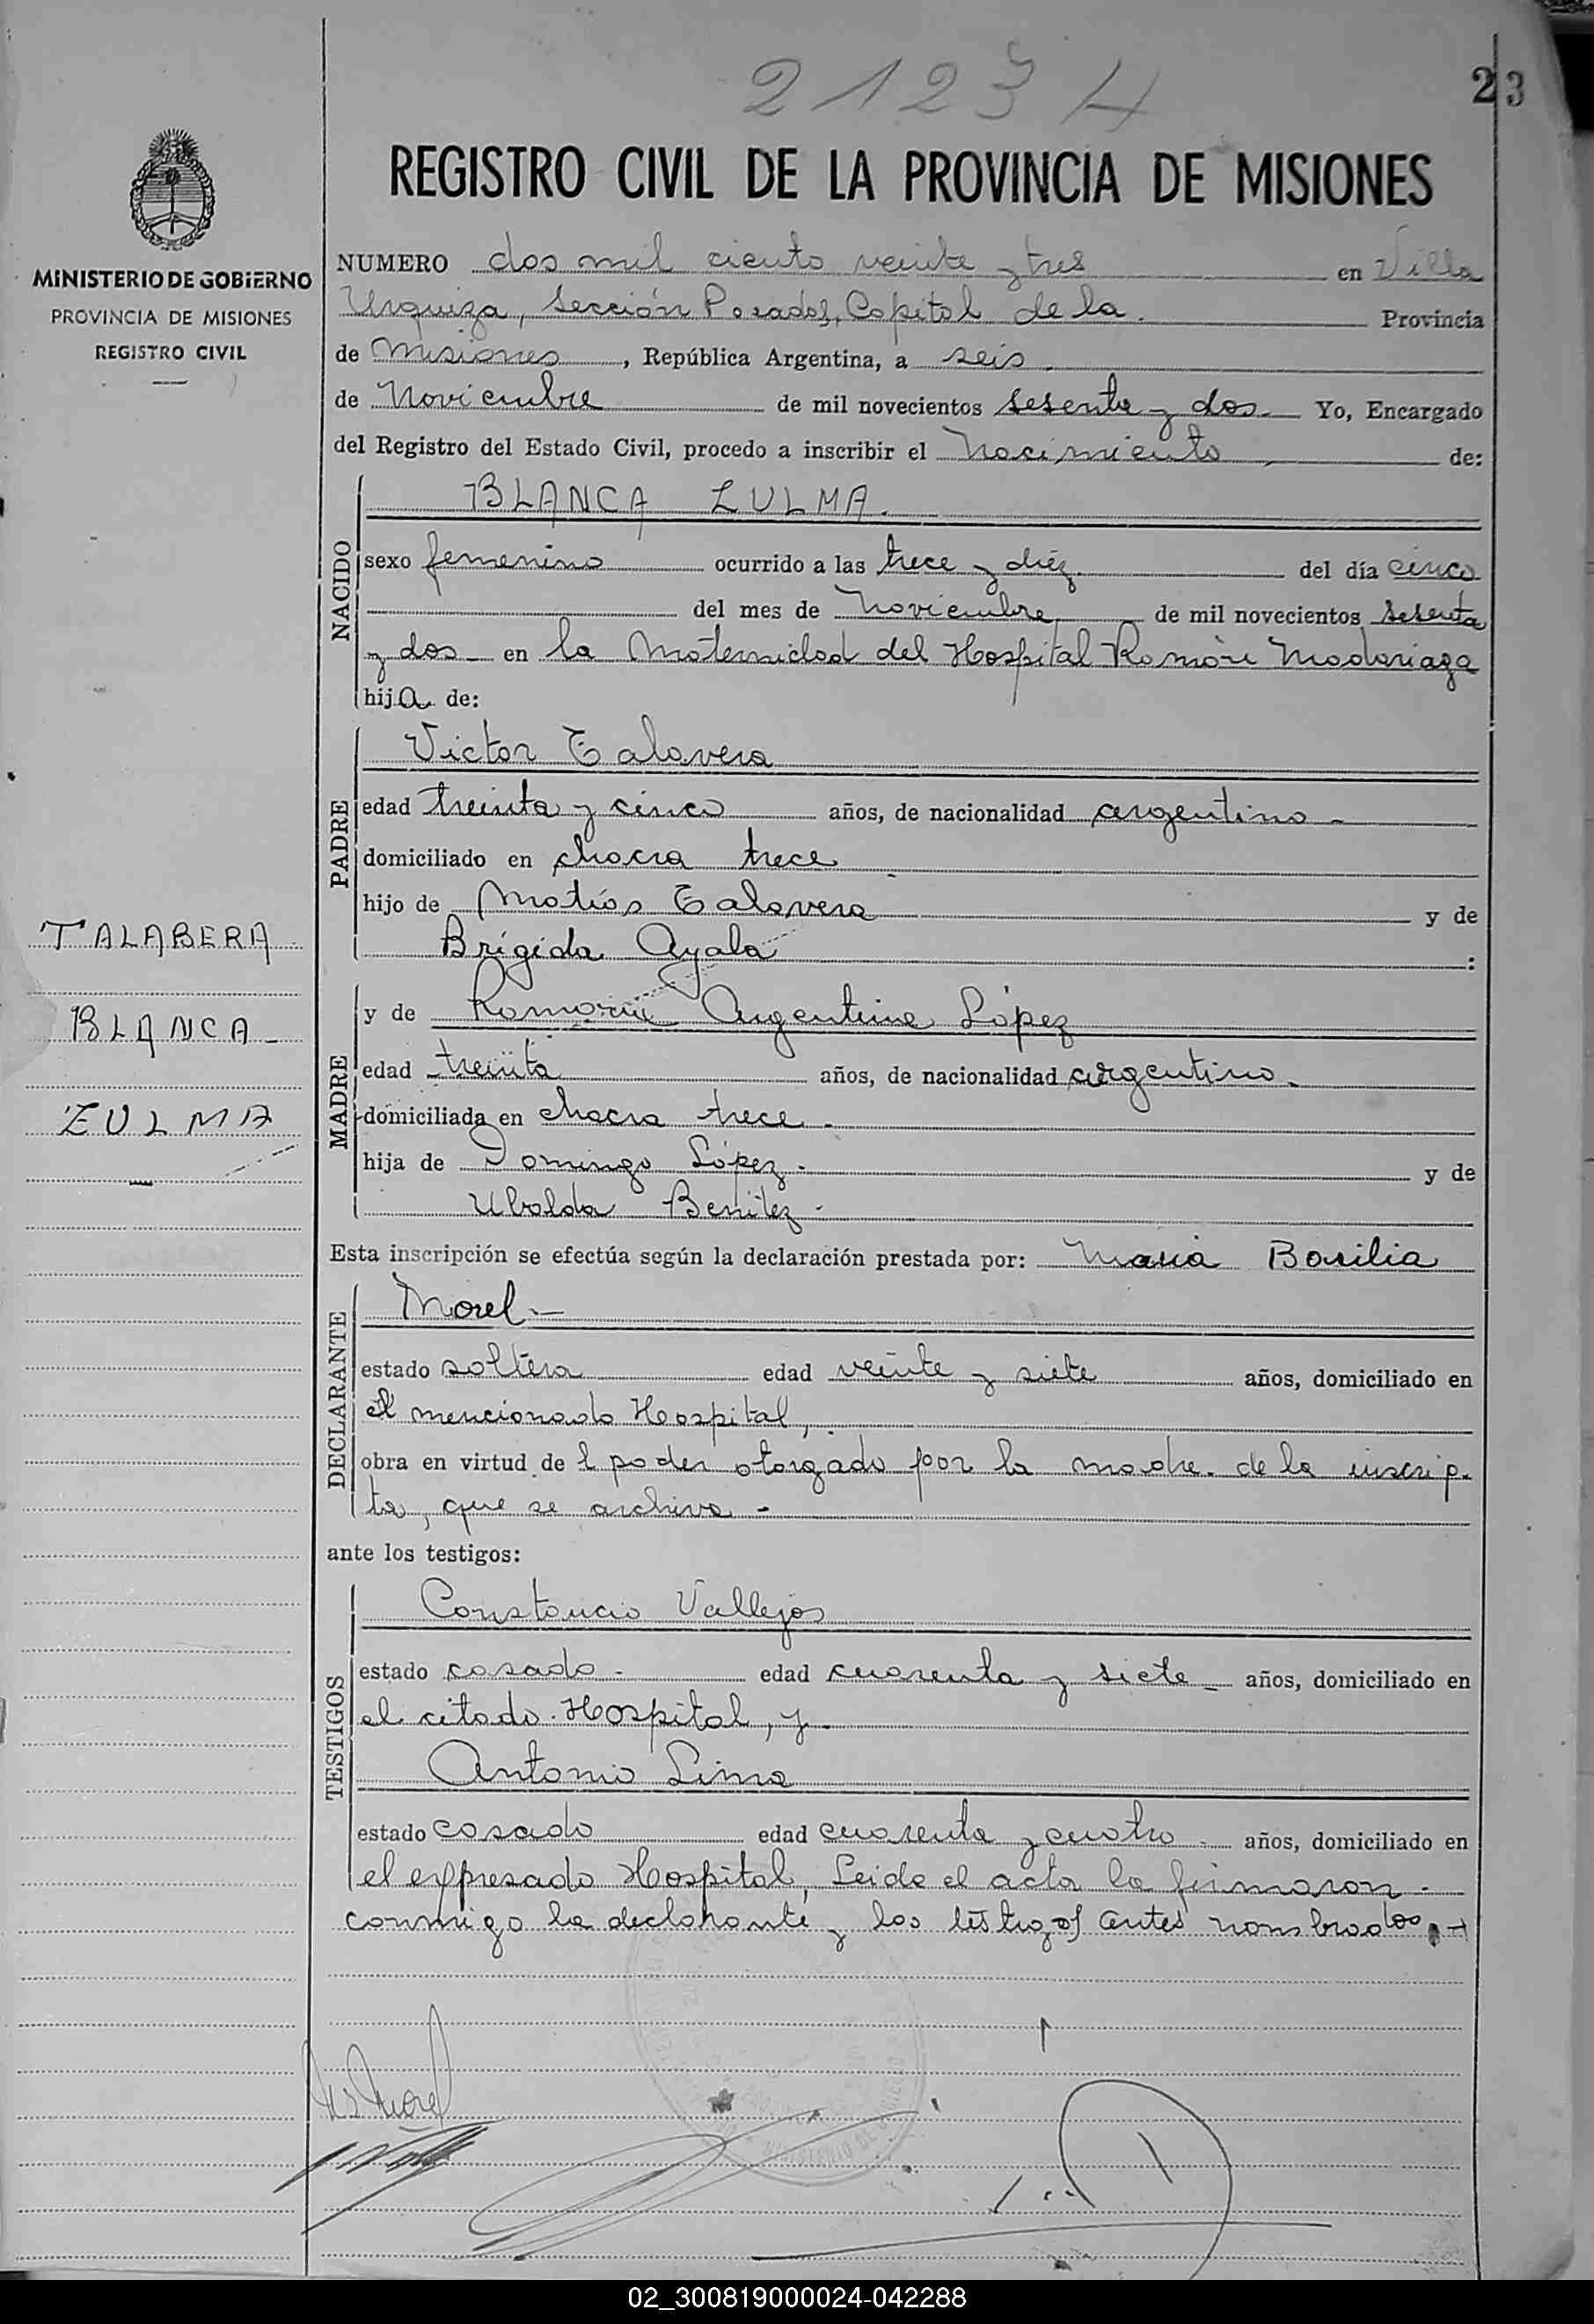 2123 4
23
REGISTRO CIVIL DE LA PROVINCIA DE MISIONES
MINISTERIO DE GOBIERNO
PROVINCIA DE MISIONES
REGISTRO CIVIL
NUMERO dos mil ciento veinte y tres en Villa
Urquiza, Sección Posadas, Capital de la. Provincia
de Misiones, República Argentina, a seis.
de Noviembre de mil novecientos sesenta y dos Yo, Encargado
del Registro del Estado Civil, procedo a inscribir el Nacimiento de:
NACIDO
BLANCA ZULMA.
sexo femenino ocurrido a las trece y diéz del día cinco
del mes de Noviembre de mil novecientos sesenta
y dos en la Maternidad del Hospital Ramón Madariaga
hija de:
PADRE
Victor Talavera
edad treinta y cinco años, de nacionalidad argentino
domiciliado en chacra trece
hijo de Matías Talavera y de
Brígida Ayala :
TALABERA
BLANCA
ZULMA
MADRE
y de Ramona Argentina López
edad treinta años, de nacionalidad argentina.
domiciliada en chacra trece.
hija de Domingo López. y de
Ubalda Benítez
Esta inscripción se efectúa según la declaración prestada por: Maria Basilia
DECLARANTE
Morel
estado soltera edad veinte y siete años, domiciliado en
el mencionado Hospital,
obra en virtud de l poder otorgado por la madre de la inscrip-
ta, que se archiva -
ante los testigos:
TESTIGOS
Constancio Vallejos
estado casado edad cuarenta y siete años, domiciliado en
el citado Hospital, y
Antonio Lima
estado casado edad cuarenta y cuatro años, domiciliado en
el expresado Hospital, Leida el acta la firmaron
conmigo la declarante y los testigos antes nombrados.
Morel
02_300819000024-042288